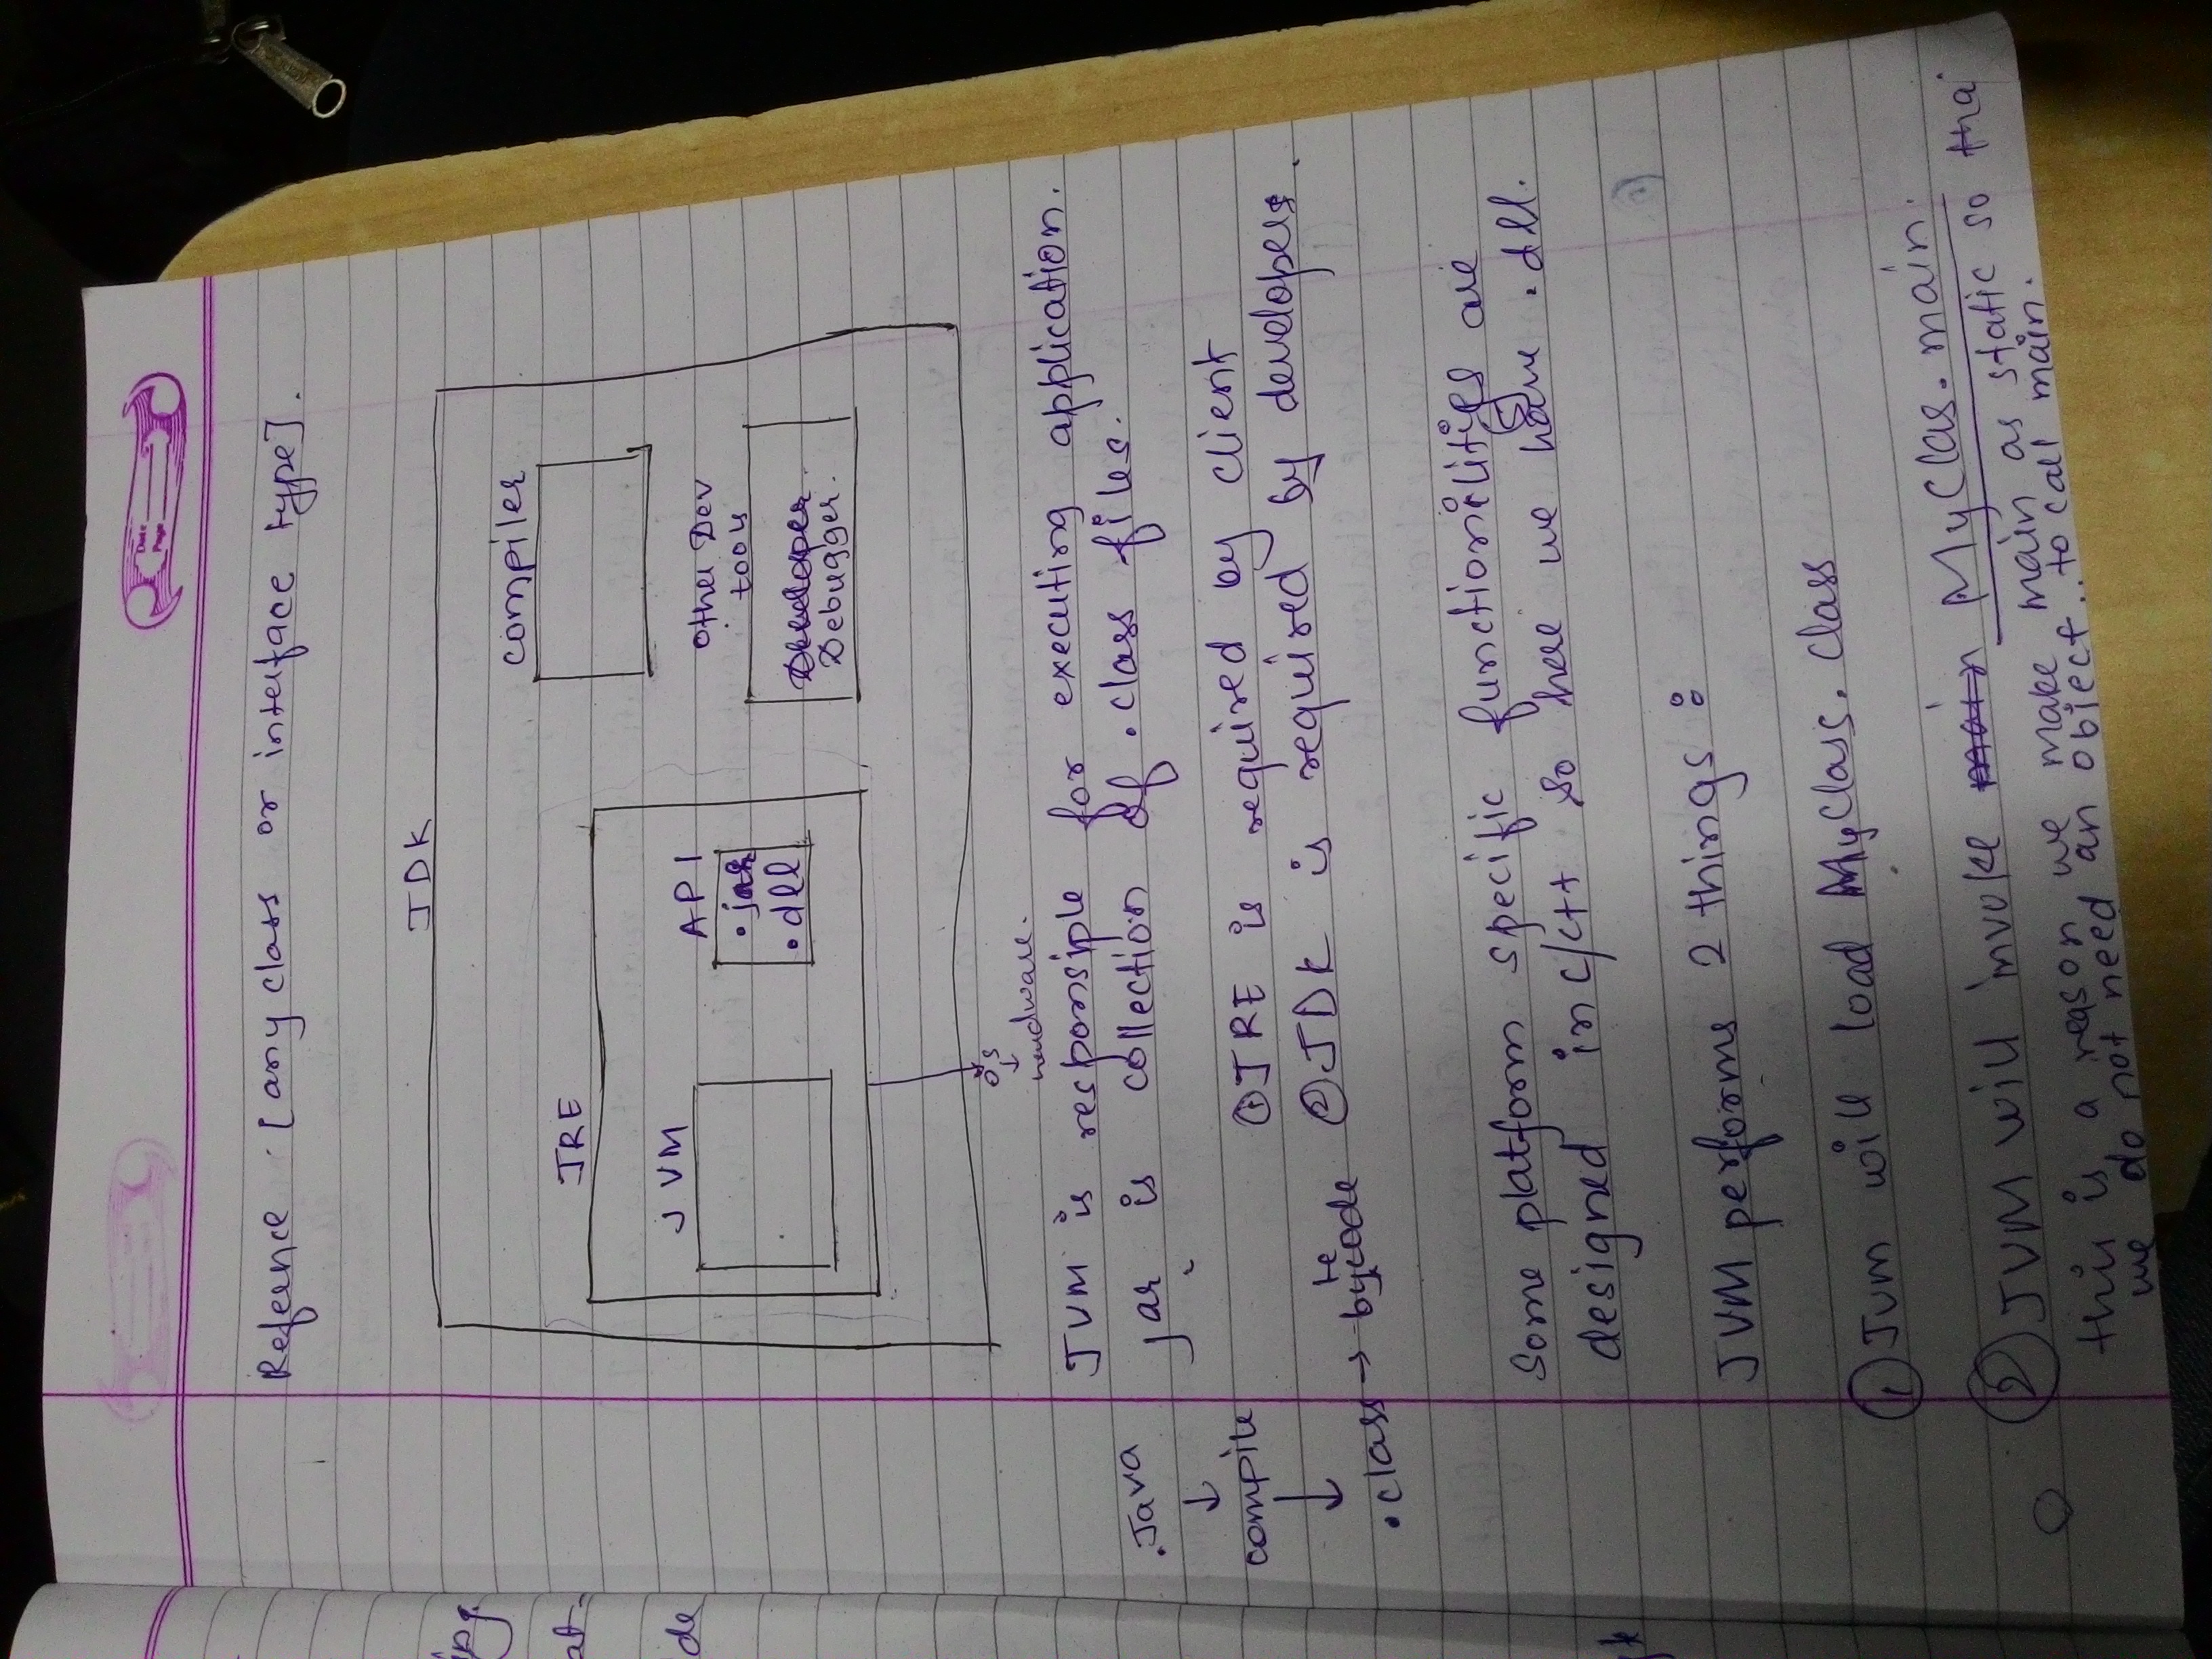 Date
Page
Refernce [any class or interface type].
JDK
compiler
JRE
JVM
API
.jar
.dll
other Dev
tools
Debugger.
OS
↓
hardware.
JVM is responsiple for executing application.
jar is collection of .class files.
.Java
↓
compile
↓
.class → bytecode
① JRE is required by client
② JDK is required by developers.
Some platform specific functionilities are
designed in c/c++ so here we have .dll.
JVM performs 2 things :
① Jvm will load MyClass. Class
② JVM will invoke main MyClas. main.
this is a reason we make main as static so tha
we do not need an object.. to call main.
ipg.
at-
de